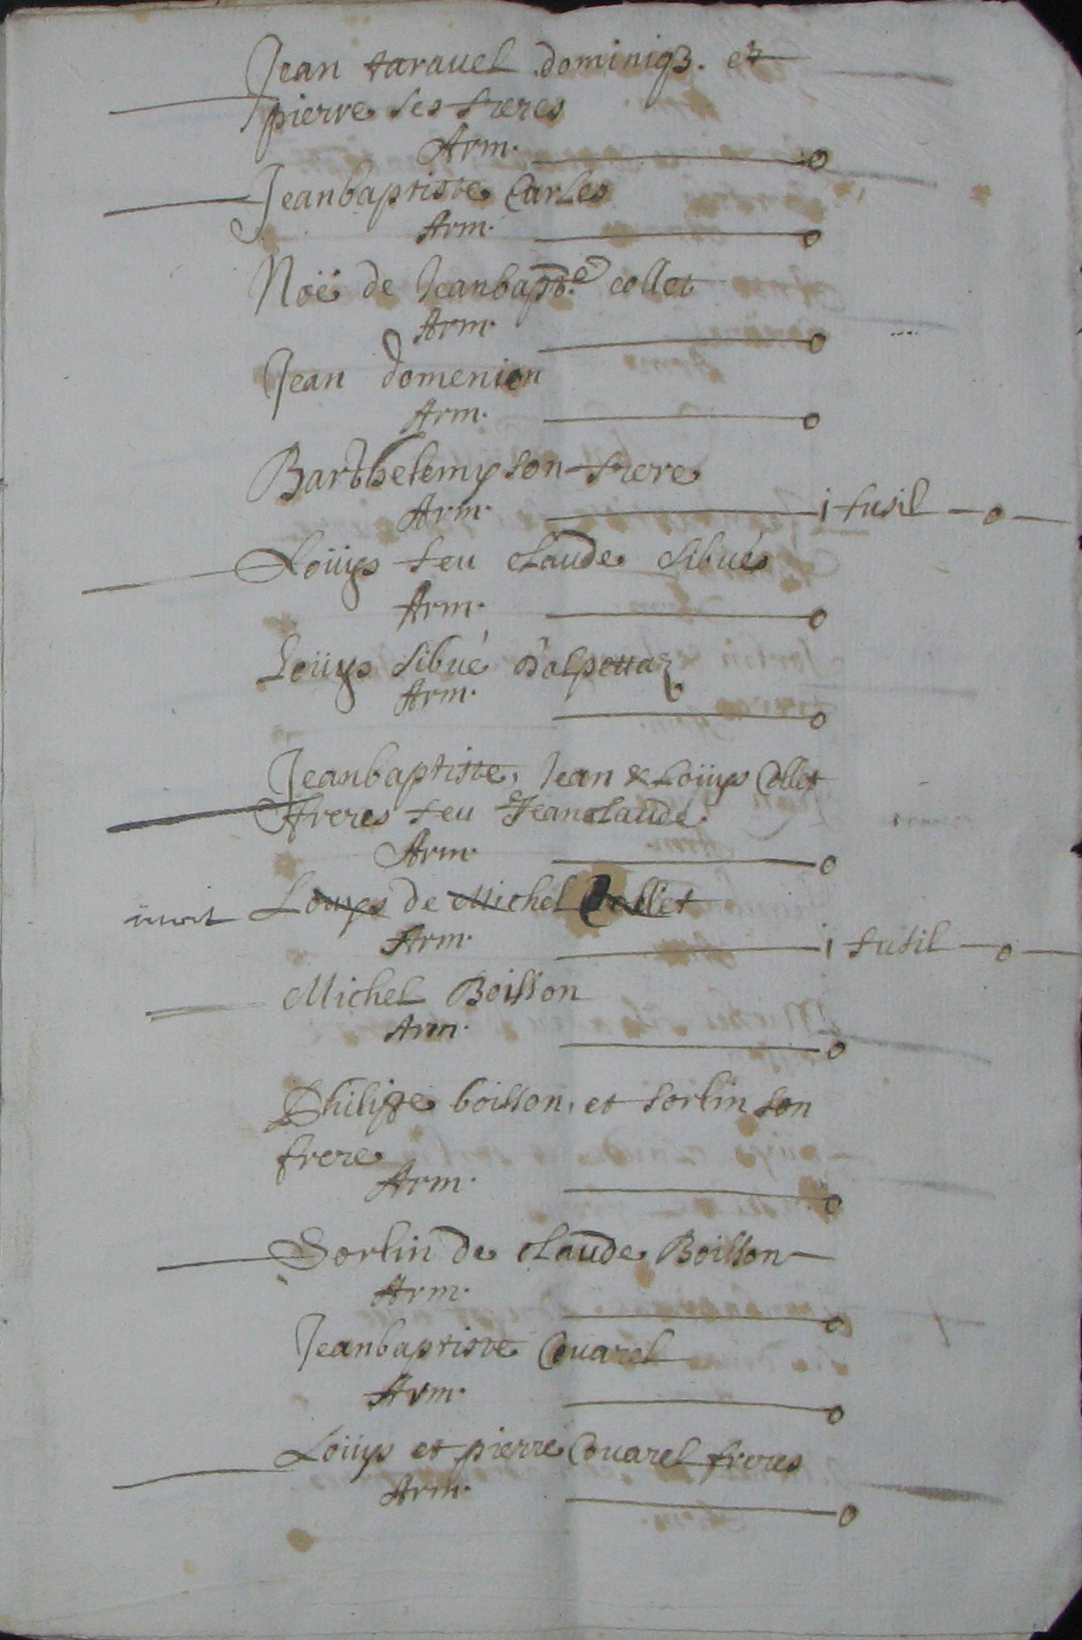 Jean taravel dominiq3. et
pierre ses freres
Arm. o
Jeanbaptiste Carles
Arm. o
Noë de Jeanbapt.e collet
Arm. o
Jean domenion
Arm. o
Barthelemy son frere
Arm. 1 fusil o
Loüys feu claude sibués
Arm. o
Loüys sibué Dalpettaz
Arm. o
Jeanbaptiste, Jean & Loüys Collet
freres feu Jeanclaude
Arm. o
mort Louys de Michel Collet
Arm. 1 fusil o
Michel Boisson
Arm. o
Philippe boisson, et sorlin son
frere
Arm. o
Sorlin de claude Boisson
Arm. o
Jeanbaptiste Couarel
Arm. o
Loüys et pierre Couarel freres
Arm. o